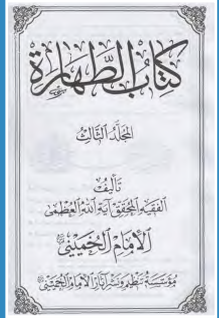 كتاب الطهارة
المجلد الثالث
تأليف
الفقيه المحقق آية الله العظمى
الإمام الخميني
مؤسسة تنظيم ونشر آثار الإمام الخميني